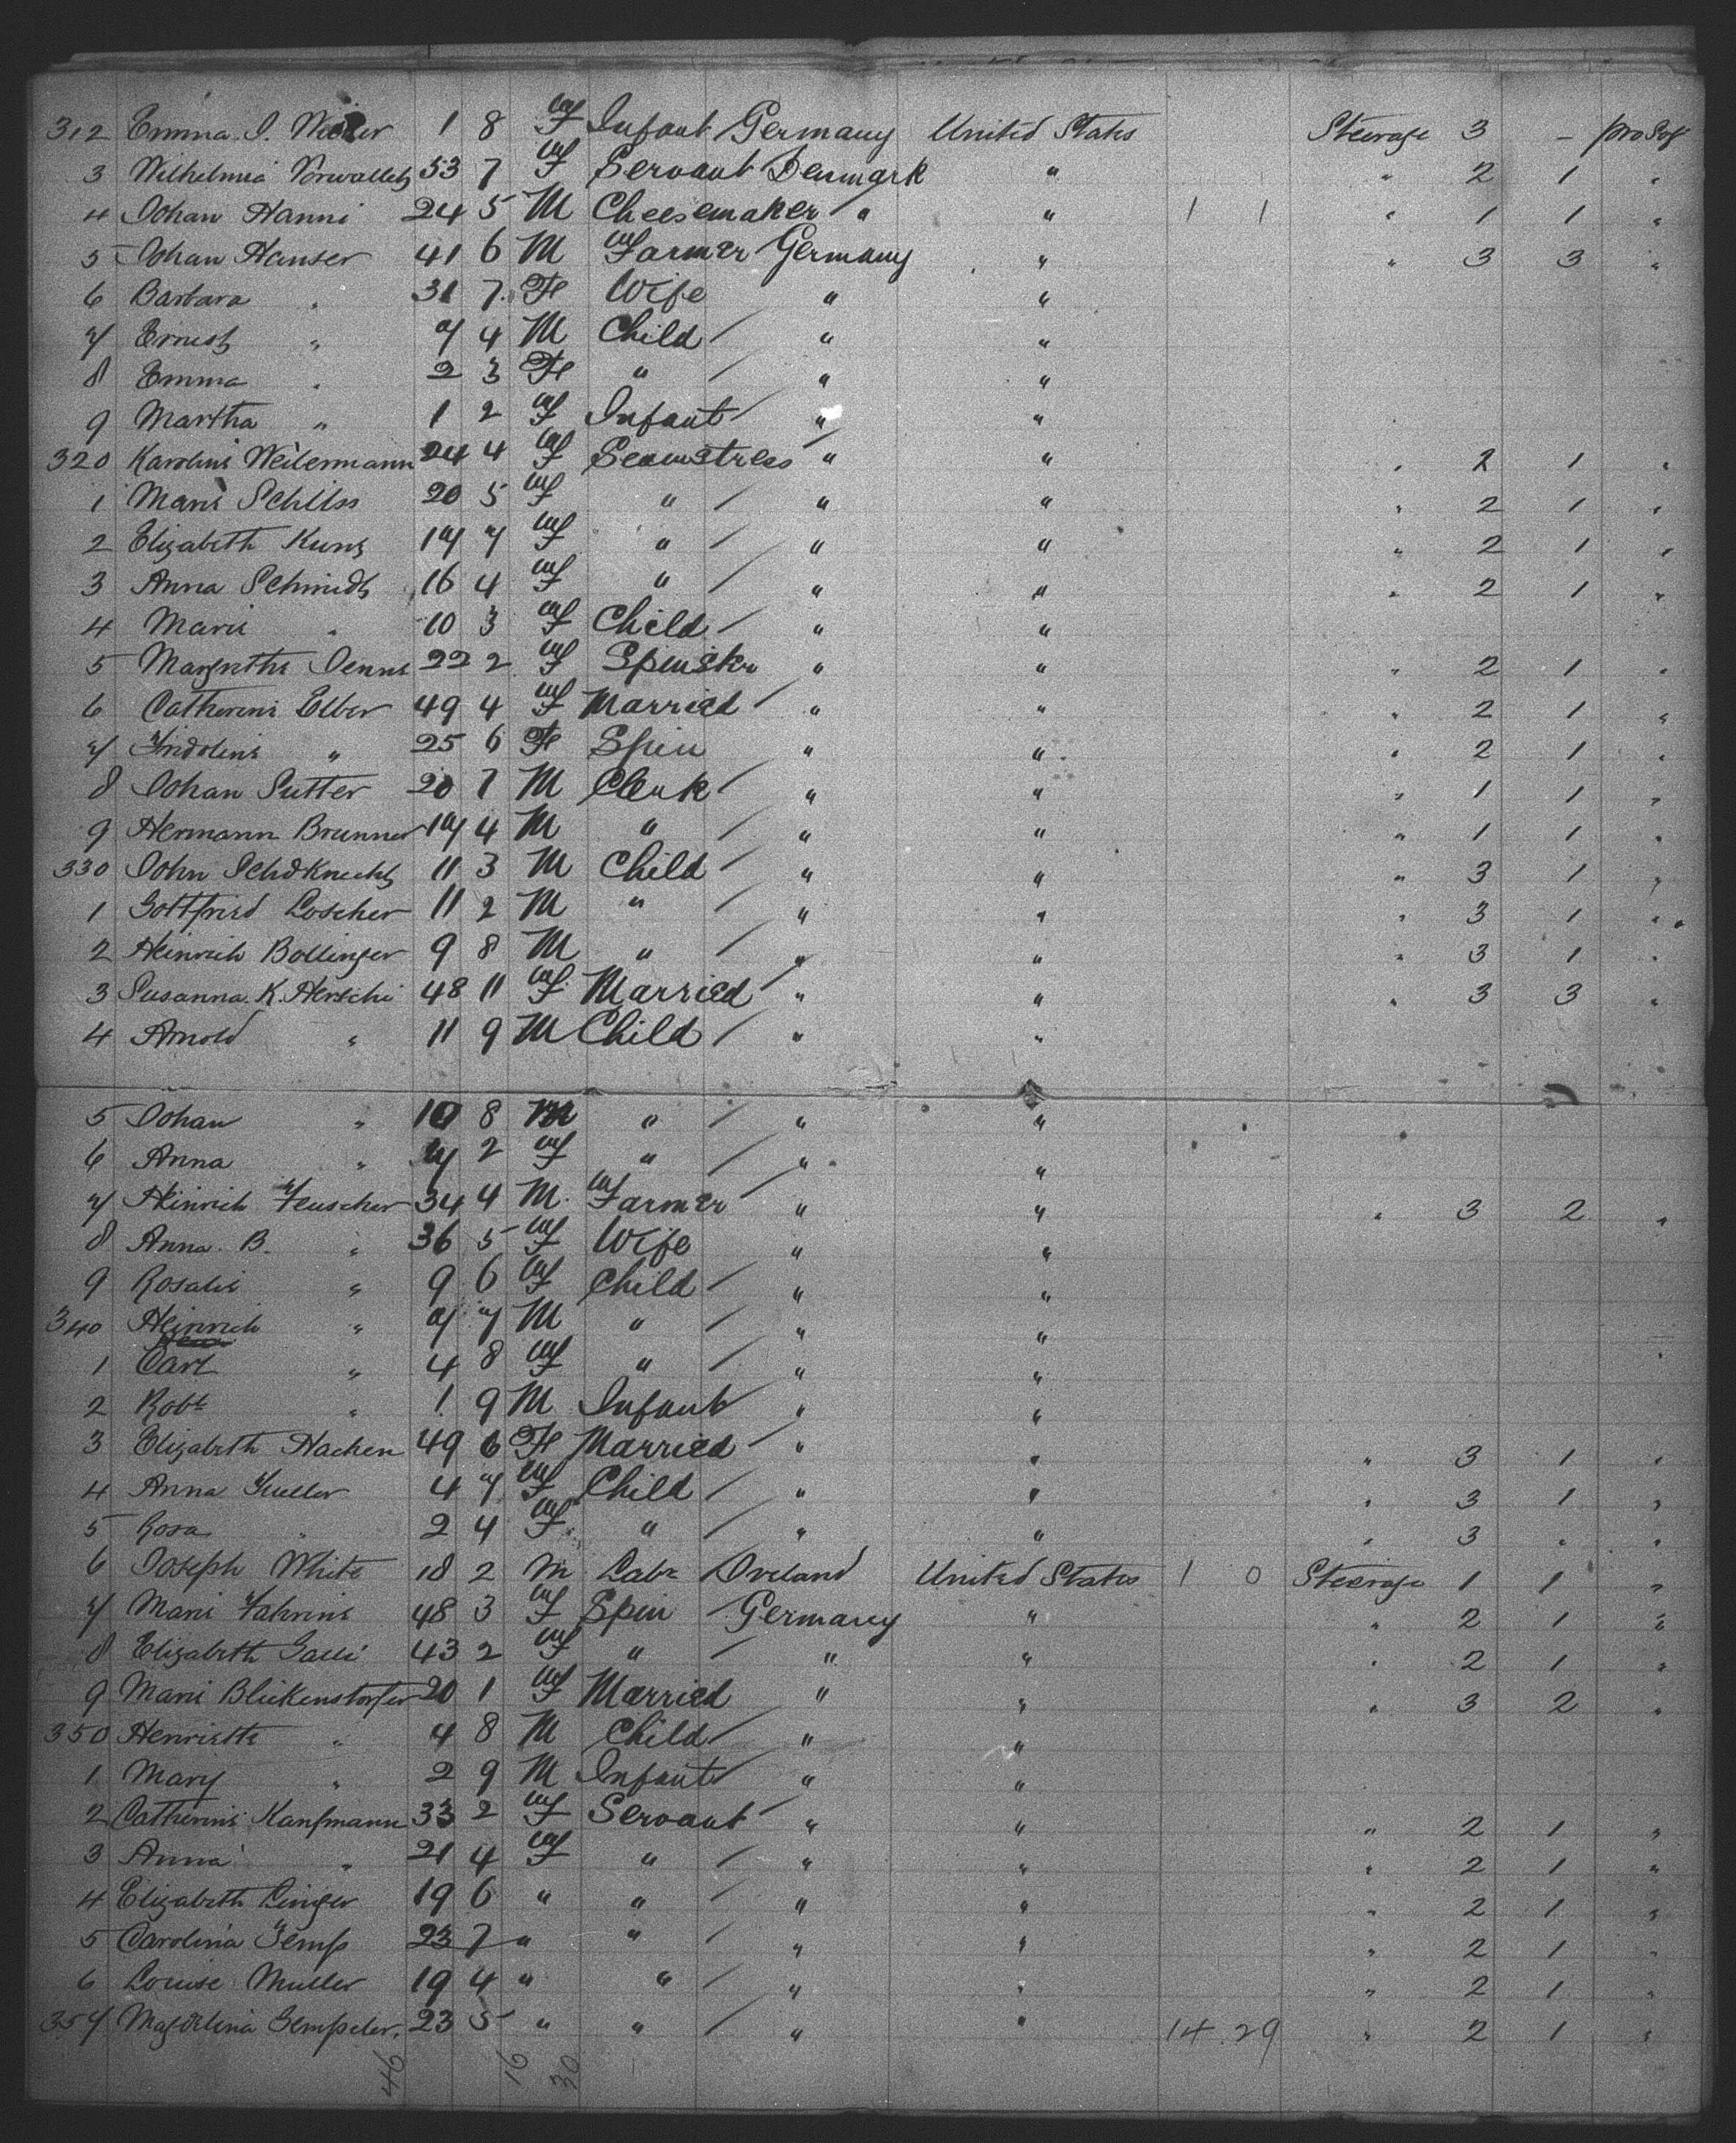 312 Emma I. Weber 1 8 F Infant Germany United States Steerage 3 - pro Sof
3 Wilhelmia Vorwalletz 53 7 F Servant Denmark " " 2 1 "
4 Johan Hanni 24 5 M Cheesemaker " " 1 1 " 1 1 "
5 Johan Hanser 41 6 M Farmer Germany " " 3 3 "
6 Barbara " 31 7 Fe Wife " "
7 Ernest " 7 4 M Child / " "
8 Emma " 2 3 Fe " / " "
9 Martha " 1 2 F Infant / " "
320 Karolini Weilermann 24 4 F Seamstress / " " " 2 1 "
1 Marie Schliss 20 5 F " / " " " 2 1 "
2 Elizabeth Kunz 17 7 F " / " " " 2 1 "
3 Anna Schmidt 16 4 F " / " " " 2 1 "
4 Marie " 10 3 F Child / " "
5 Margrethe Jenne 22 2 F Spinstr " " " 2 1 "
6 Catherine Elber 49 4 F Married / " " " 2 1 "
7 Fridoline " 25 6 Fe Spin " " " 2 1 "
8 Johan Sutter 20 7 M Clerk / " " " 1 1 "
9 Hermann Brunner 17 4 M " / " " " 1 1 "
330 John Schdknecht 11 3 M Child / " " " 3 1 "
1 Gottfried Loscher 11 2 M " / " " " 3 1 "
2 Heinrich Bollinger 9 8 M " / " " " 3 1 "
3 Susanna K. Hertschi 48 11 F Married / " " " 3 3 "
4 Arnold " 11 9 M Child / " "
5 Johan " 10 8 M " / " "
6 Anna " 7 2 F " / " "
7 Heinrich Feuscher 34 4 M Farmer / " " " 3 2 "
8 Anna B. " 36 5 F Wife " "
9 Rosalie " 9 6 F Child / " "
340 Heinrich " 7 7 M " / " "
1 Carl " 4 8 F " / " "
2 Robt " 1 9 M Infant / " "
3 Elizabeth Hacken 49 6 Fe Married / " " " 3 1 "
4 Anna Fuller 4 7 F Child / " " " 3 1 "
5 Rosa " 2 4 F " / " " " 3 " "
6 Joseph White 18 2 M Labr Ireland United States 1 0 Steerage 1 1 "
7 Marie Fahrine 48 3 F Spin / Germany " " 2 1 "
8 Elizabeth Galli 43 2 F " / " " " 2 1 "
9 Marie Blickenstorfer 20 1 F Married " " " 3 2 "
350 Henriette " 4 8 M Child / " "
1 Mary " 2 9 M Infant / " "
2 Catherine Kaufmann 33 2 F Servant / " " " 2 1 "
3 Anna " 21 4 F " / " " " 2 1 "
4 Elizabeth Linger 19 6 " " / " " " 2 1 "
5 Carolina Gemp 23 7 " " / " " " 2 1 "
6 Louise Muller 19 4 " " / " " " 2 1 "
357 Magdelina Gempeler 23 5 " " / " " 14 29 " 2 1 "
46 16 30